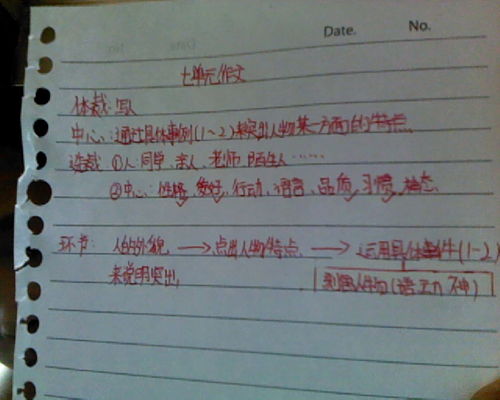 Date. No.
七单元作文
体裁:写人
中心:通过具体事例(1~2)来突出人物某一方面的特点.
选裁 ①人:同学、亲人、老师、陌生人……
②中心:性格、爱好、行动、语言、品质、习惯、神态.
环节: 人的外貌 → 点出人物特点 → 运用具体事件(1~2)
来说明突出
刻画人物(语 动 神)